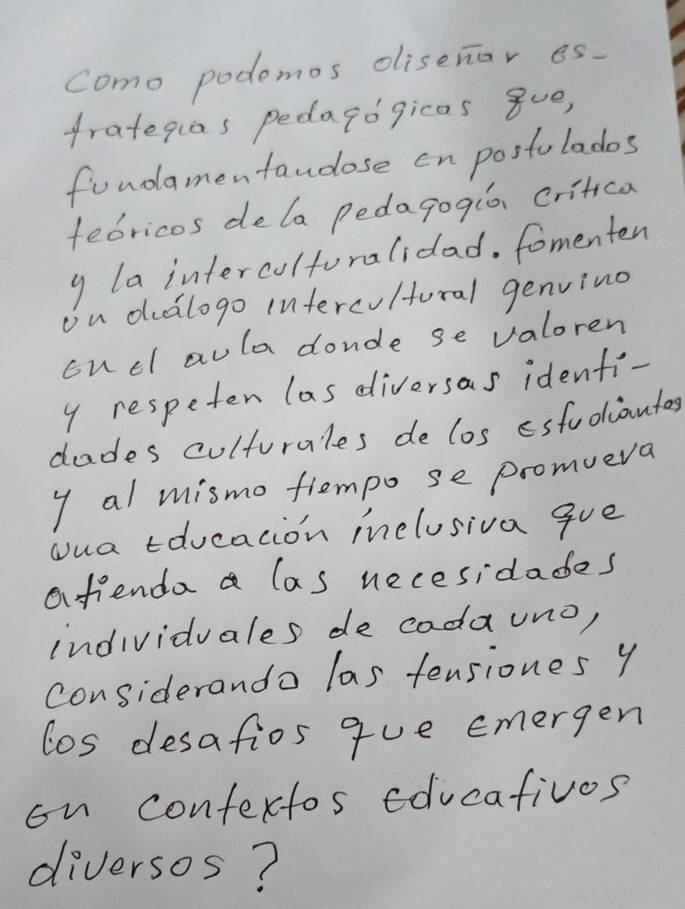 como podemos diseñar es-
trategias pedagógicas que,
fundamentandose en postulados
teóricos de la pedagogía crítica
y la interculturalidad. fomenten
un diálogo intercultural genuino
en el aula donde se valoren
y respeten las diversas identi-
dades culturales de los estudiantes
y al mismo tiempo se promueva
una educación inclusiva que
atienda a las necesidades
individuales de cada uno,
considerando las tensiones y
los desafios que emergen
en contextos educativos
diversos?